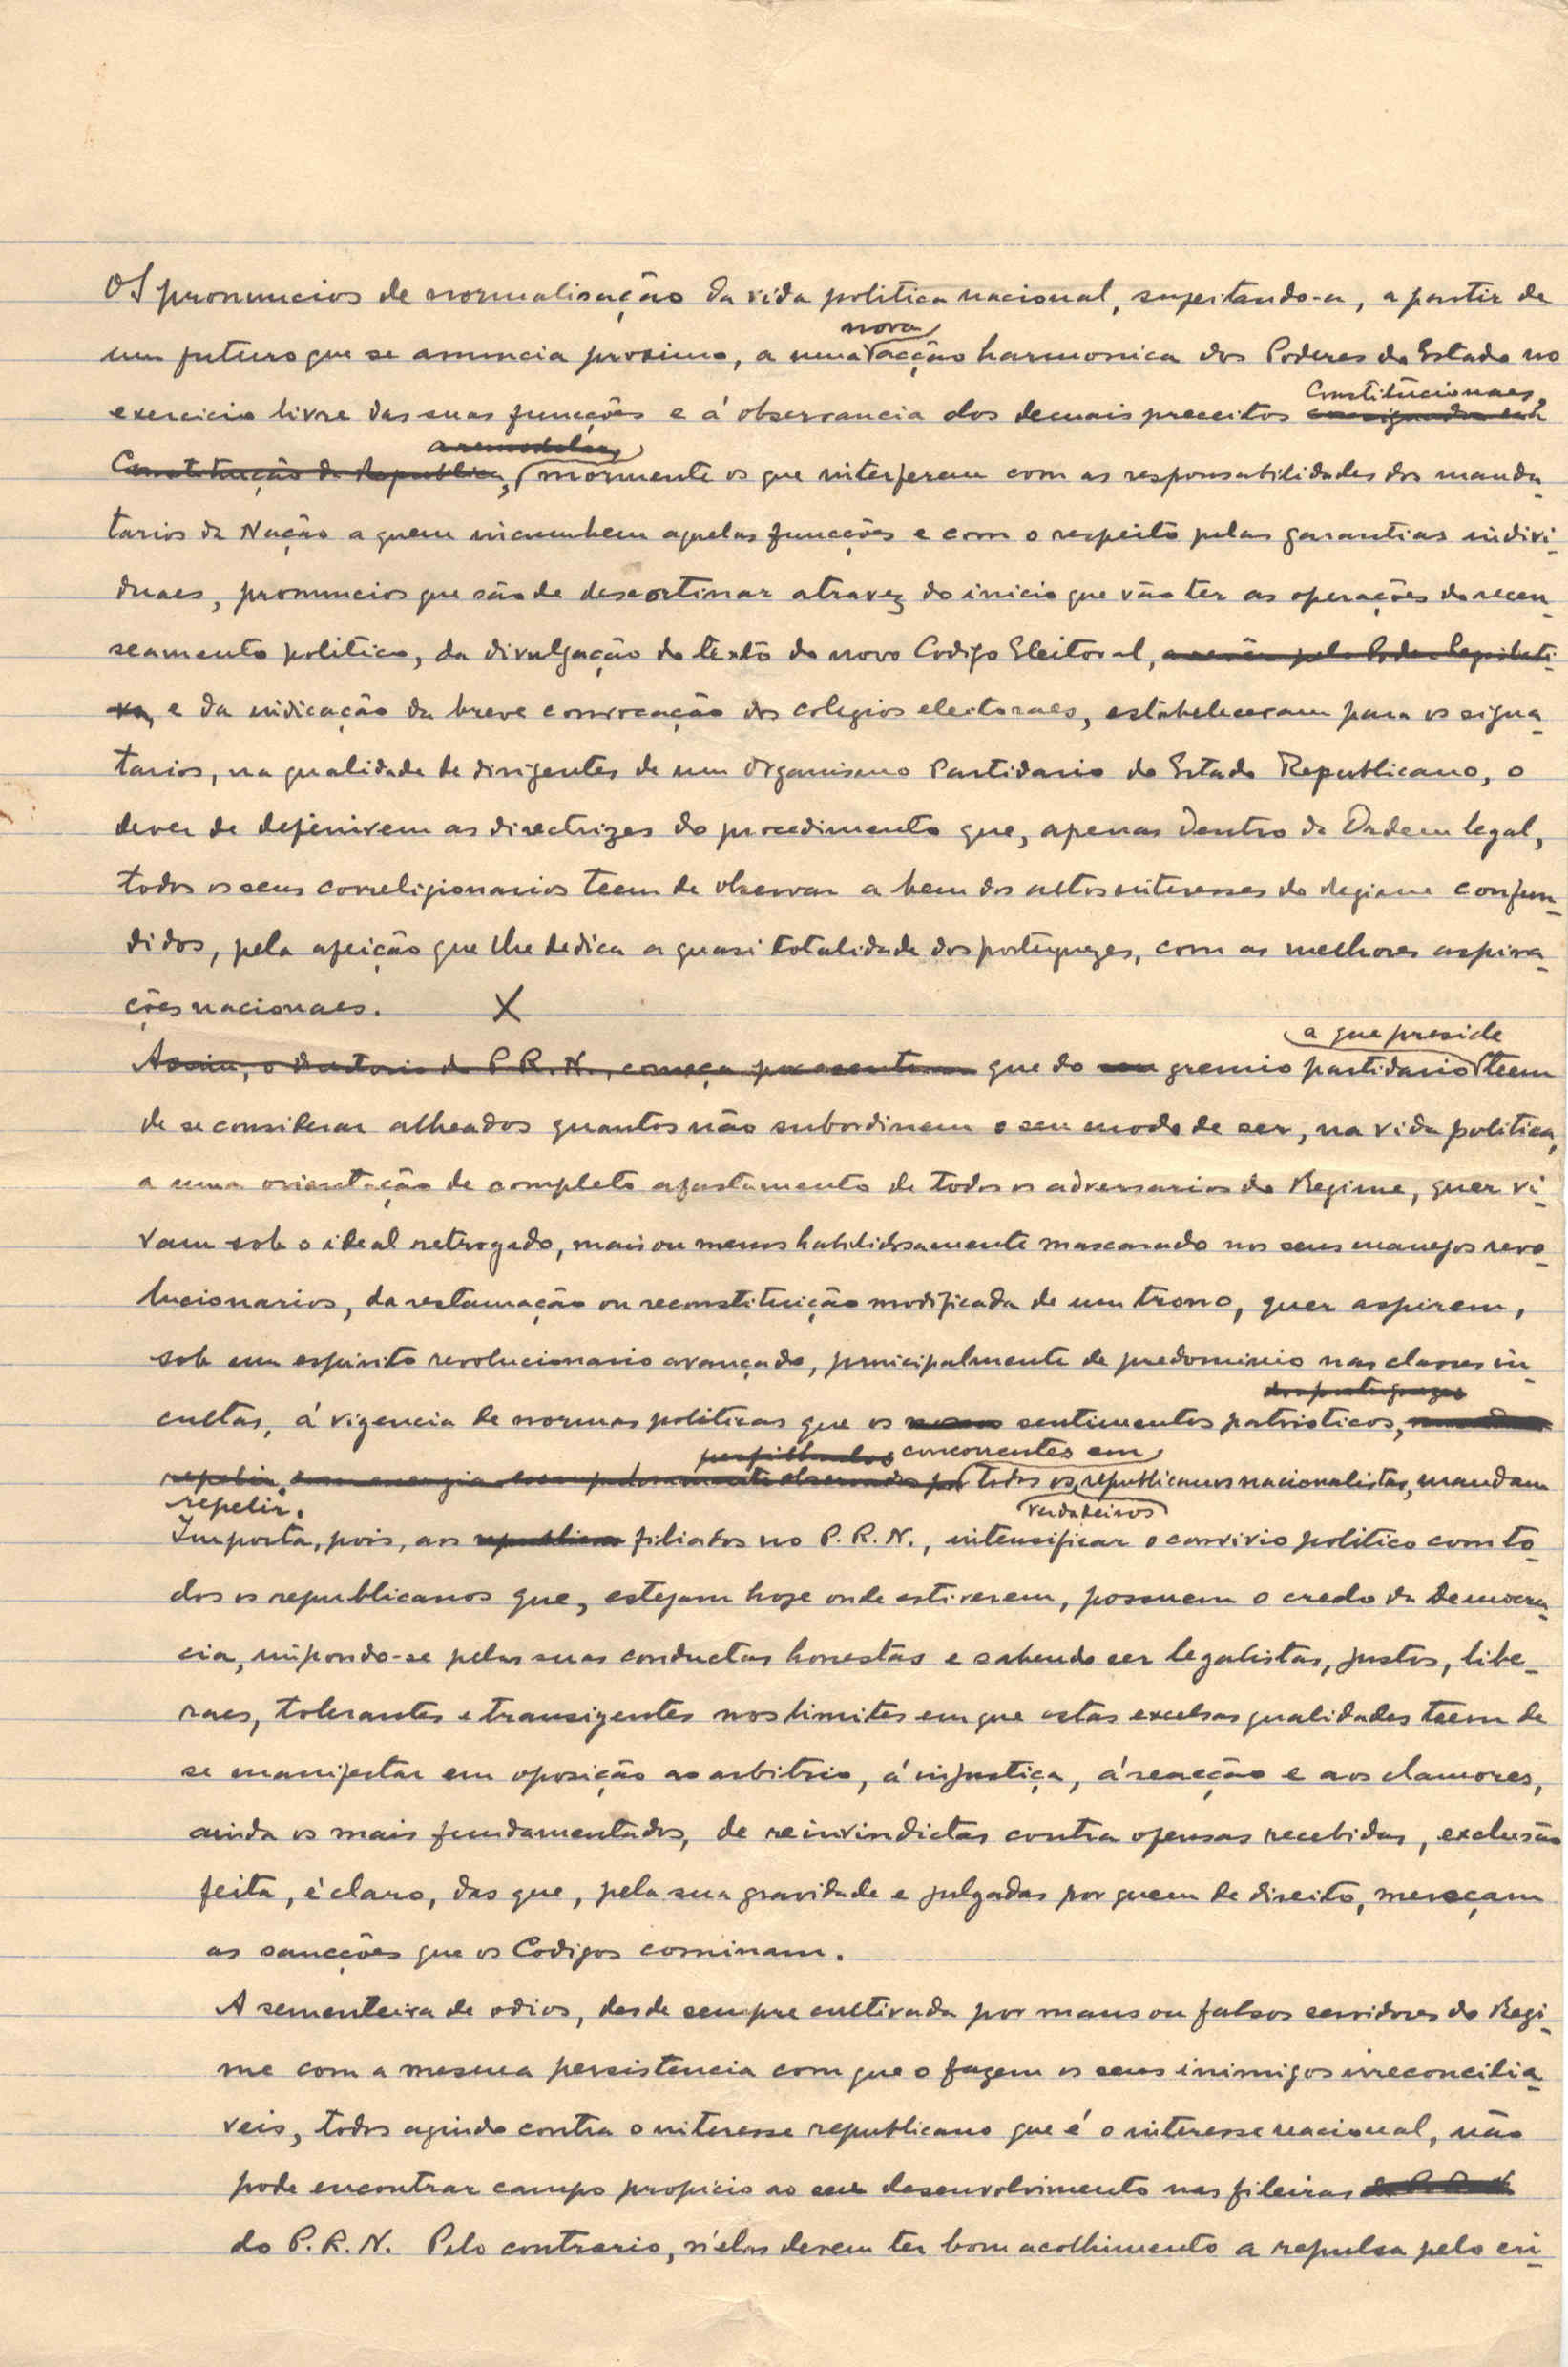 Os pronuncios de normalisação da vida politica nacional, sugeitando-a, a partir de
nova
um futuro que se anuncia proximo, a uma acção harmonica dos Poderes do Estado no
Constitucionaes,
exercicio livre das suas funcções e á observancia dos demais preceitos consignados na
a remodelar,
Constituição da Republica, mormente os que interferem com as responsabilidades dos manda-
tarios da Nação a quem incumbem aquelas funcções e com o respeito pelas garantias indivi-
duaes, pronuncios que são de descortinar atravez do inicio que vão ter as operações do recen-
seamento politico, da divulgação do texto do novo Codigo Eleitoral, a rever pelo Poder Legislati-
vo, e da indicação da breve convocação dos colegios eleitoraes, estabeleceram para os signa-
tarios, na qualidade de dirigentes de um Organismo Partidario do Estado Republicano, o
dever de defenirem as directrizes do procedimento que, apenas dentro da Ordem legal,
todos os seus correligionarios teem de observar a bem dos altos interesses do Regime confun-
didos, pela afeição que lhe dedica a quasi totalidade dos portuguezes, com as melhores aspira-
ções nacionaes. X
a que preside
Assim, o Directorio do P. R. N., começa por assentar em que do seu gremio partidario teem
de se considerar alheados quantos não subordinem o seu modo de ser, na vida politica,
a uma orientação de completo afastamento de todos os adversarios do Regime, quer vi-
vam sob o ideal retrogado, mais ou menos habilidosamente mascarado nos seus manejos revo-
lucionarios, da restauração ou reconstituição modificada de um trono, quer aspirem,
sob um espirito revolucionario avançado, principalmente de predominio nas classes in-
dos portuguezes
cultas, á vigencia de normas politicas que os nossos sentimentos patrioticos,
perfilhados concorrentes em
repelir com energia todos os republicanos nacionalistas, mandam
repelir. verdadeiros
Importa, pois, aos filiados no P. R. N., intensificar o convivio politico com to-
dos os republicanos que, estejam hoje onde estiverem, possuem o credo da Democra-
cia, impondo-se pelas suas conductas honestas e sabendo ser legalistas, justos, libe-
raes, tolerantes e transigentes nos limites em que estas excelsas qualidades teem de
se manifestar em oposição ao arbitrio, á injustiça, á reacção e aos clamores,
ainda os mais fundamentados, de reinvindictas contra ofensas recebidas, exclusão
feita, é claro, das que, pela sua gravidade e julgadas por quem de direito, mereçam
as sancções que os Codigos cominam.
A sementeira de odios, desde sempre cultivada por maus ou falsos servidores do Regi-
me com a mesma persistencia com que o fazem os seus inimigos irreconcilia-
veis, todos agindo contra o interesse republicano que é o interesse nacional, não
pode encontrar campo propicio ao seu desenvolvimento nas fileiras do P. R. N.
do P. R. N. Pelo contrario, n'elas devem ter bom acolhimento a repulsa pelo en-